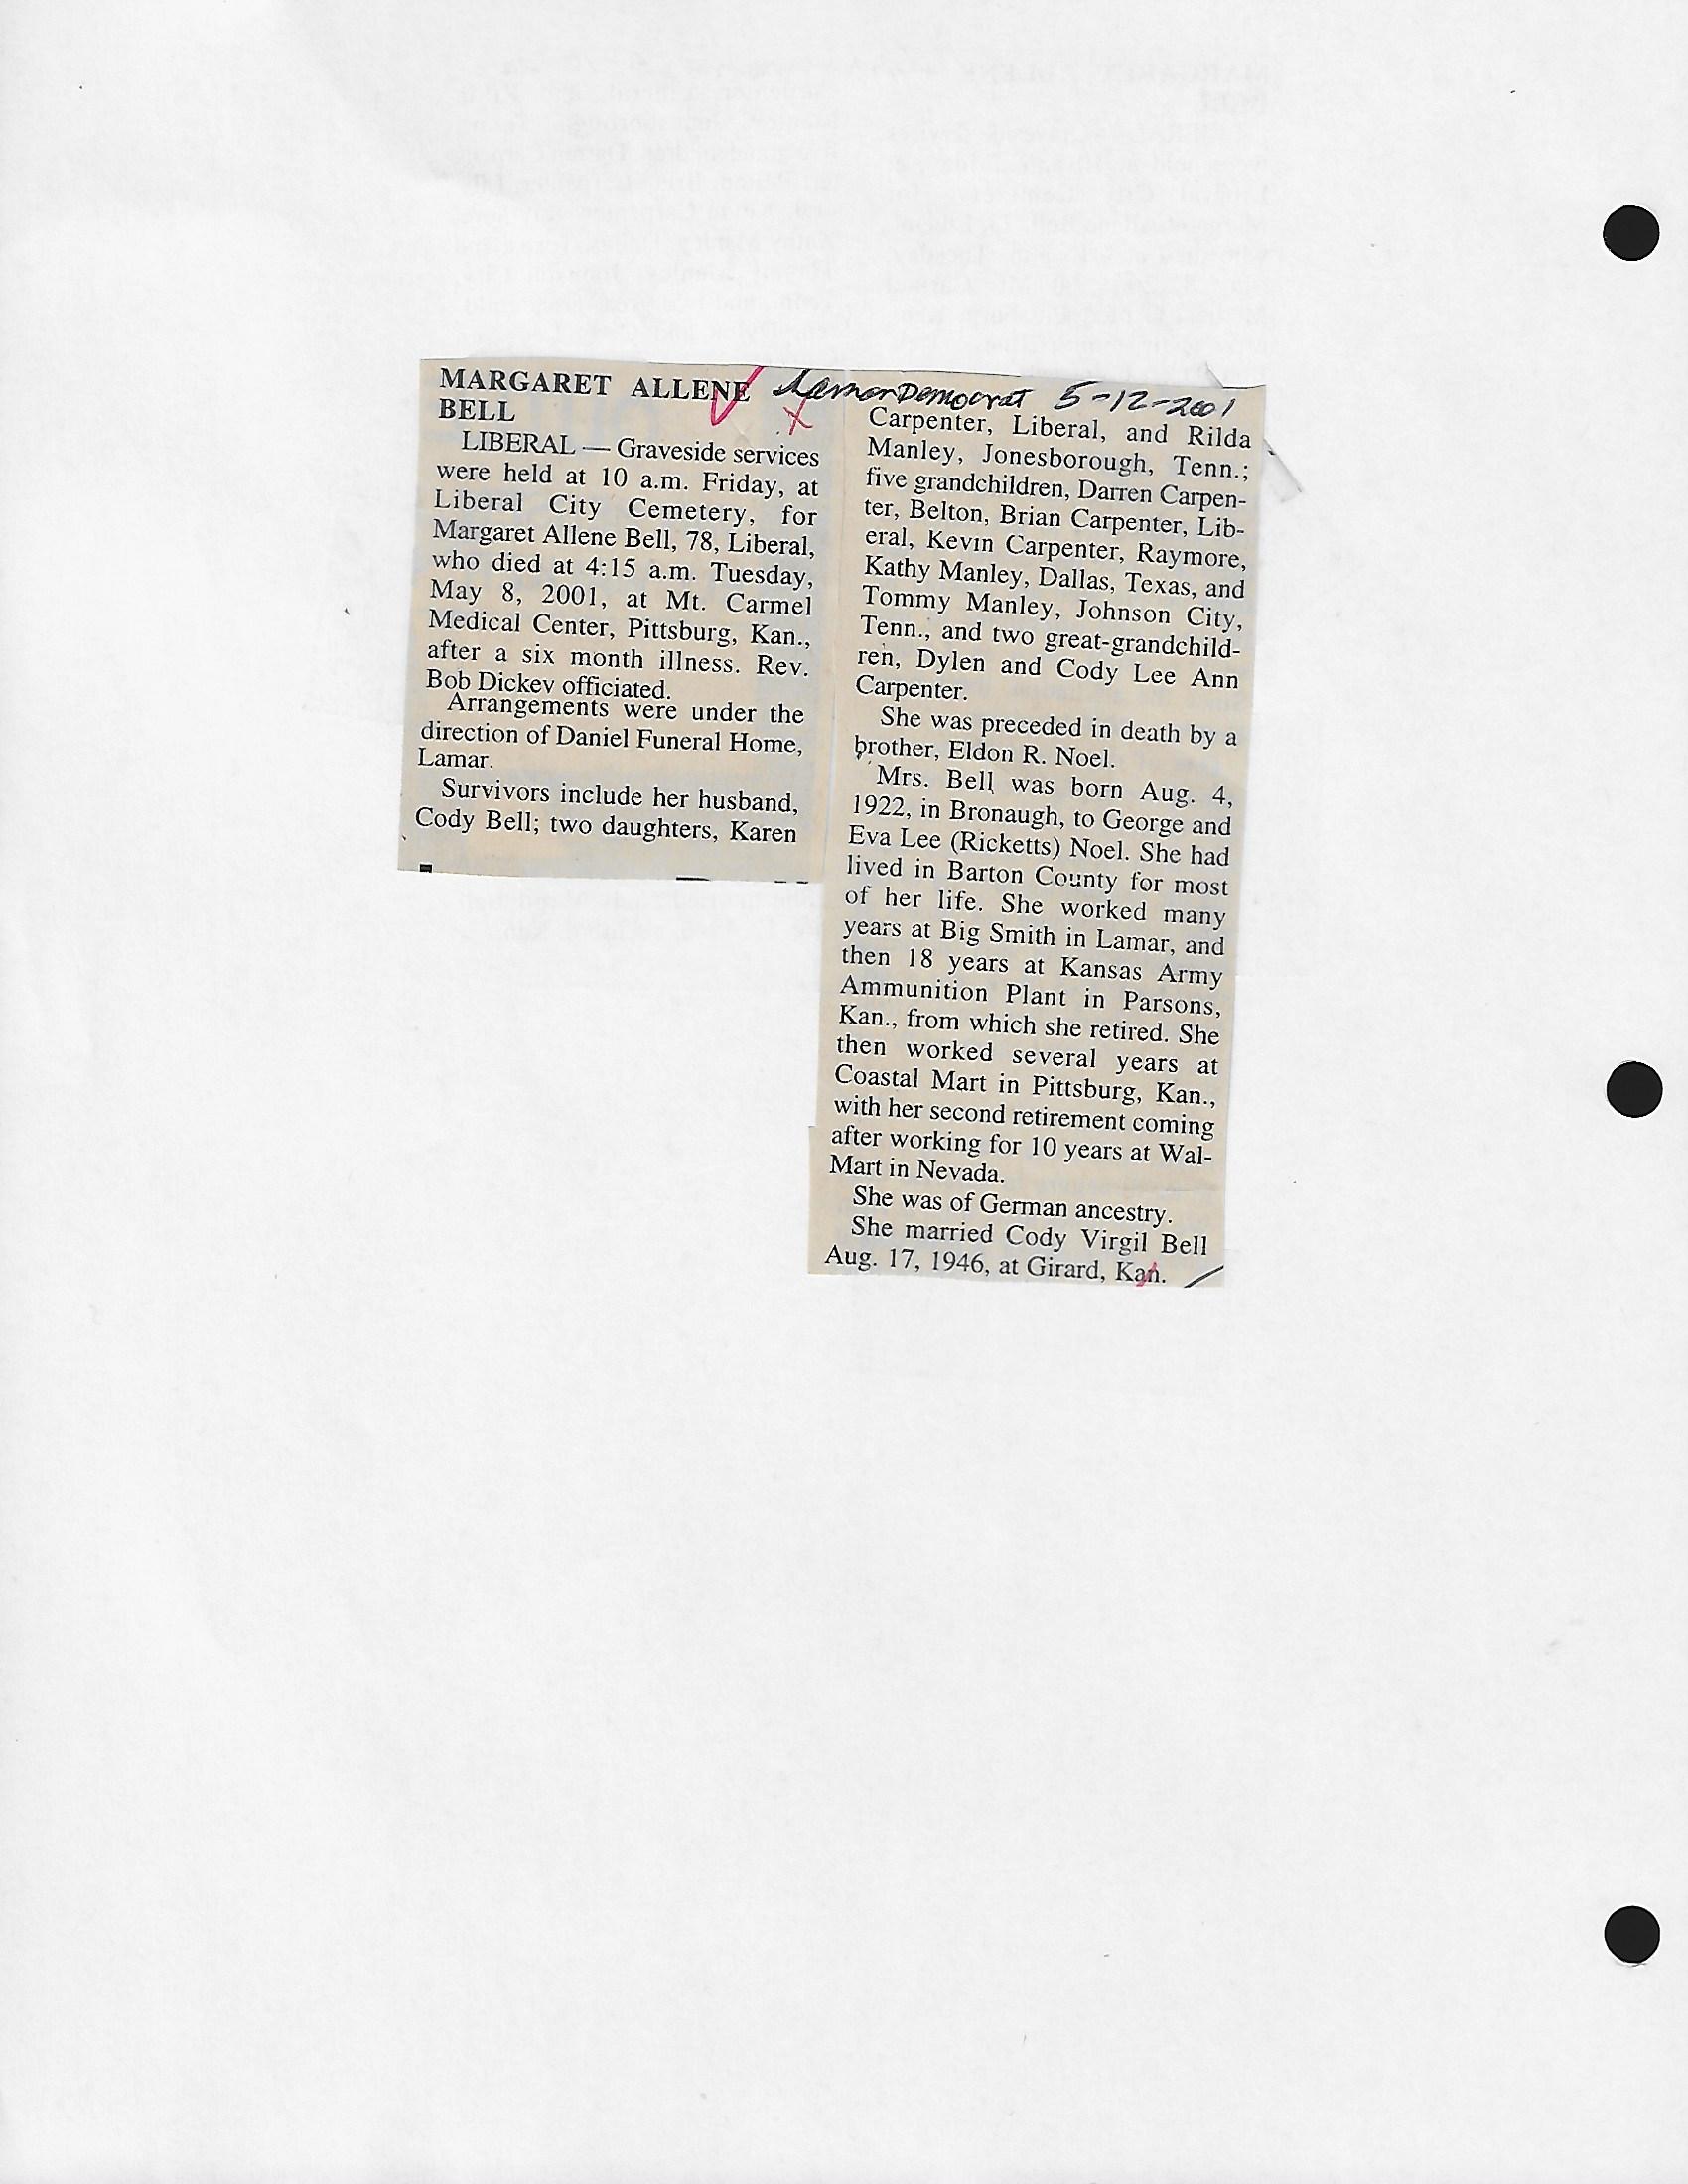 MARGARET ALLENE
BELL
LIBERAL — Graveside services
were held at 10 a.m. Friday, at
Liberal City Cemetery, for
Margaret Allene Bell, 78, Liberal,
who died at 4:15 a.m. Tuesday,
May 8, 2001, at Mt. Carmel
Medical Center, Pittsburg, Kan.,
after a six month illness. Rev.
Bob Dickey officiated.
Arrangements were under the
direction of Daniel Funeral Home,
Lamar.
Survivors include her husband,
Cody Bell; two daughters, Karen
Lamar Democrat 5-12-2001
Carpenter, Liberal, and Rilda
Manley, Jonesborough, Tenn.;
five grandchildren, Darren Carpen-
ter, Belton, Brian Carpenter, Lib-
eral, Kevin Carpenter, Raymore,
Kathy Manley, Dallas, Texas, and
Tommy Manley, Johnson City,
Tenn., and two great-grandchild-
ren, Dylen and Cody Lee Ann
Carpenter.
She was preceded in death by a
brother, Eldon R. Noel.
Mrs. Bell was born Aug. 4,
1922, in Bronaugh, to George and
Eva Lee (Ricketts) Noel. She had
lived in Barton County for most
of her life. She worked many
years at Big Smith in Lamar, and
then 18 years at Kansas Army
Ammunition Plant in Parsons,
Kan., from which she retired. She
then worked several years at
Coastal Mart in Pittsburg, Kan.,
with her second retirement coming
after working for 10 years at Wal-
Mart in Nevada.
She was of German ancestry.
She married Cody Virgil Bell
Aug. 17, 1946, at Girard, Kan.